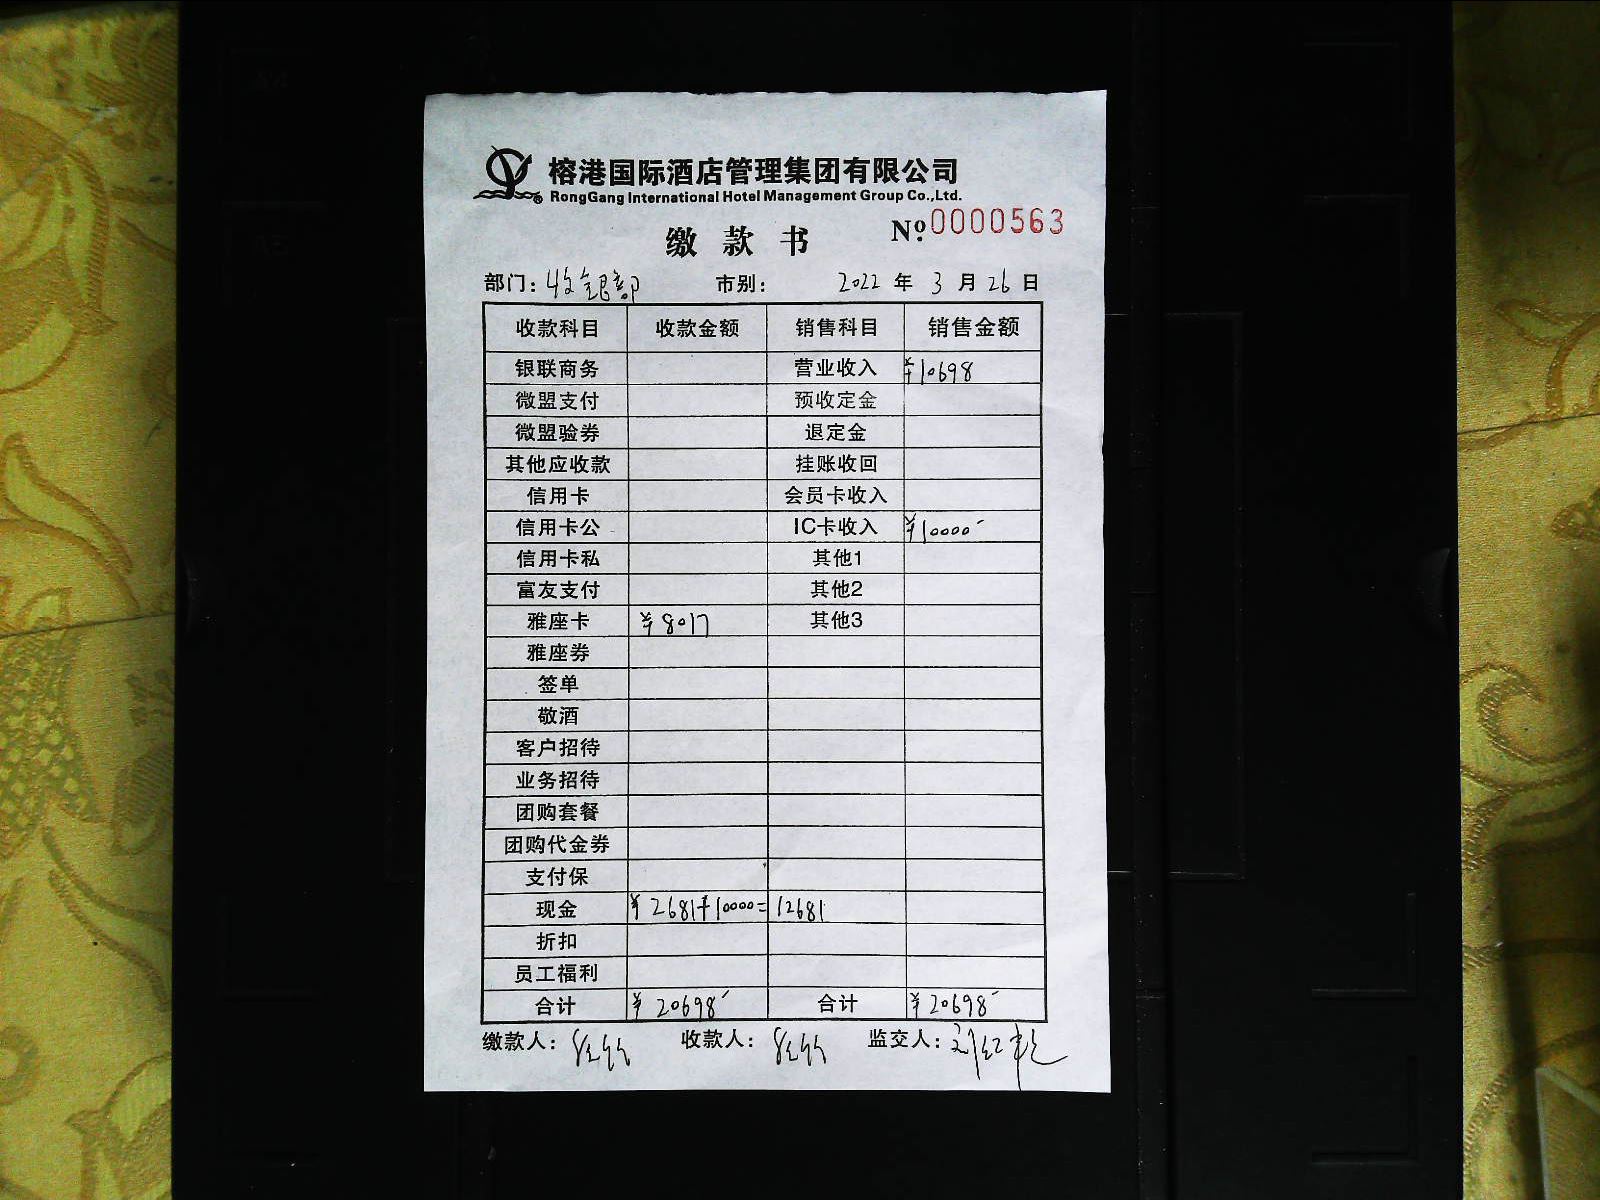 榕港国际酒店管理集团有限公司
RongGang International Hotel Management Group Co.,Ltd.
缴款书 Nº:0000563
部门:收银部 市别: 2022年3月26日
收款科目 收款金额 销售科目 销售金额
银联商务 营业收入 ¥10698
微盟支付 预收定金
微盟验券 退定金
其他应收款 挂账收回
信用卡 会员卡收入
信用卡公 IC卡收入 ¥10000
信用卡私 其他1
富友支付 其他2
雅座卡 ¥8017 其他3
雅座券
签单
敬酒
客户招待
业务招待
团购套餐
团购代金券
支付保
现金 ¥2681+10000=12681
折扣
员工福利
合计 ¥20698 合计 ¥20698
缴款人: 收款人: 监交人: